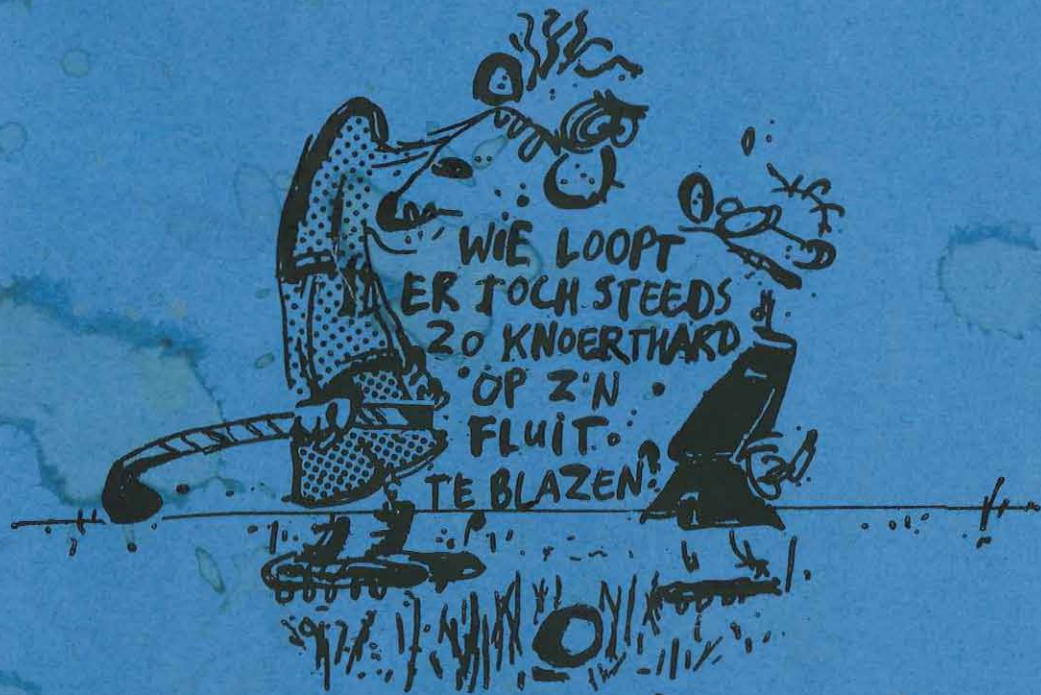 WIE LOOPT
ER TOCH STEEDS
ZO KNOERTHARD
OP Z'N
FLUIT
TE BLAZEN?